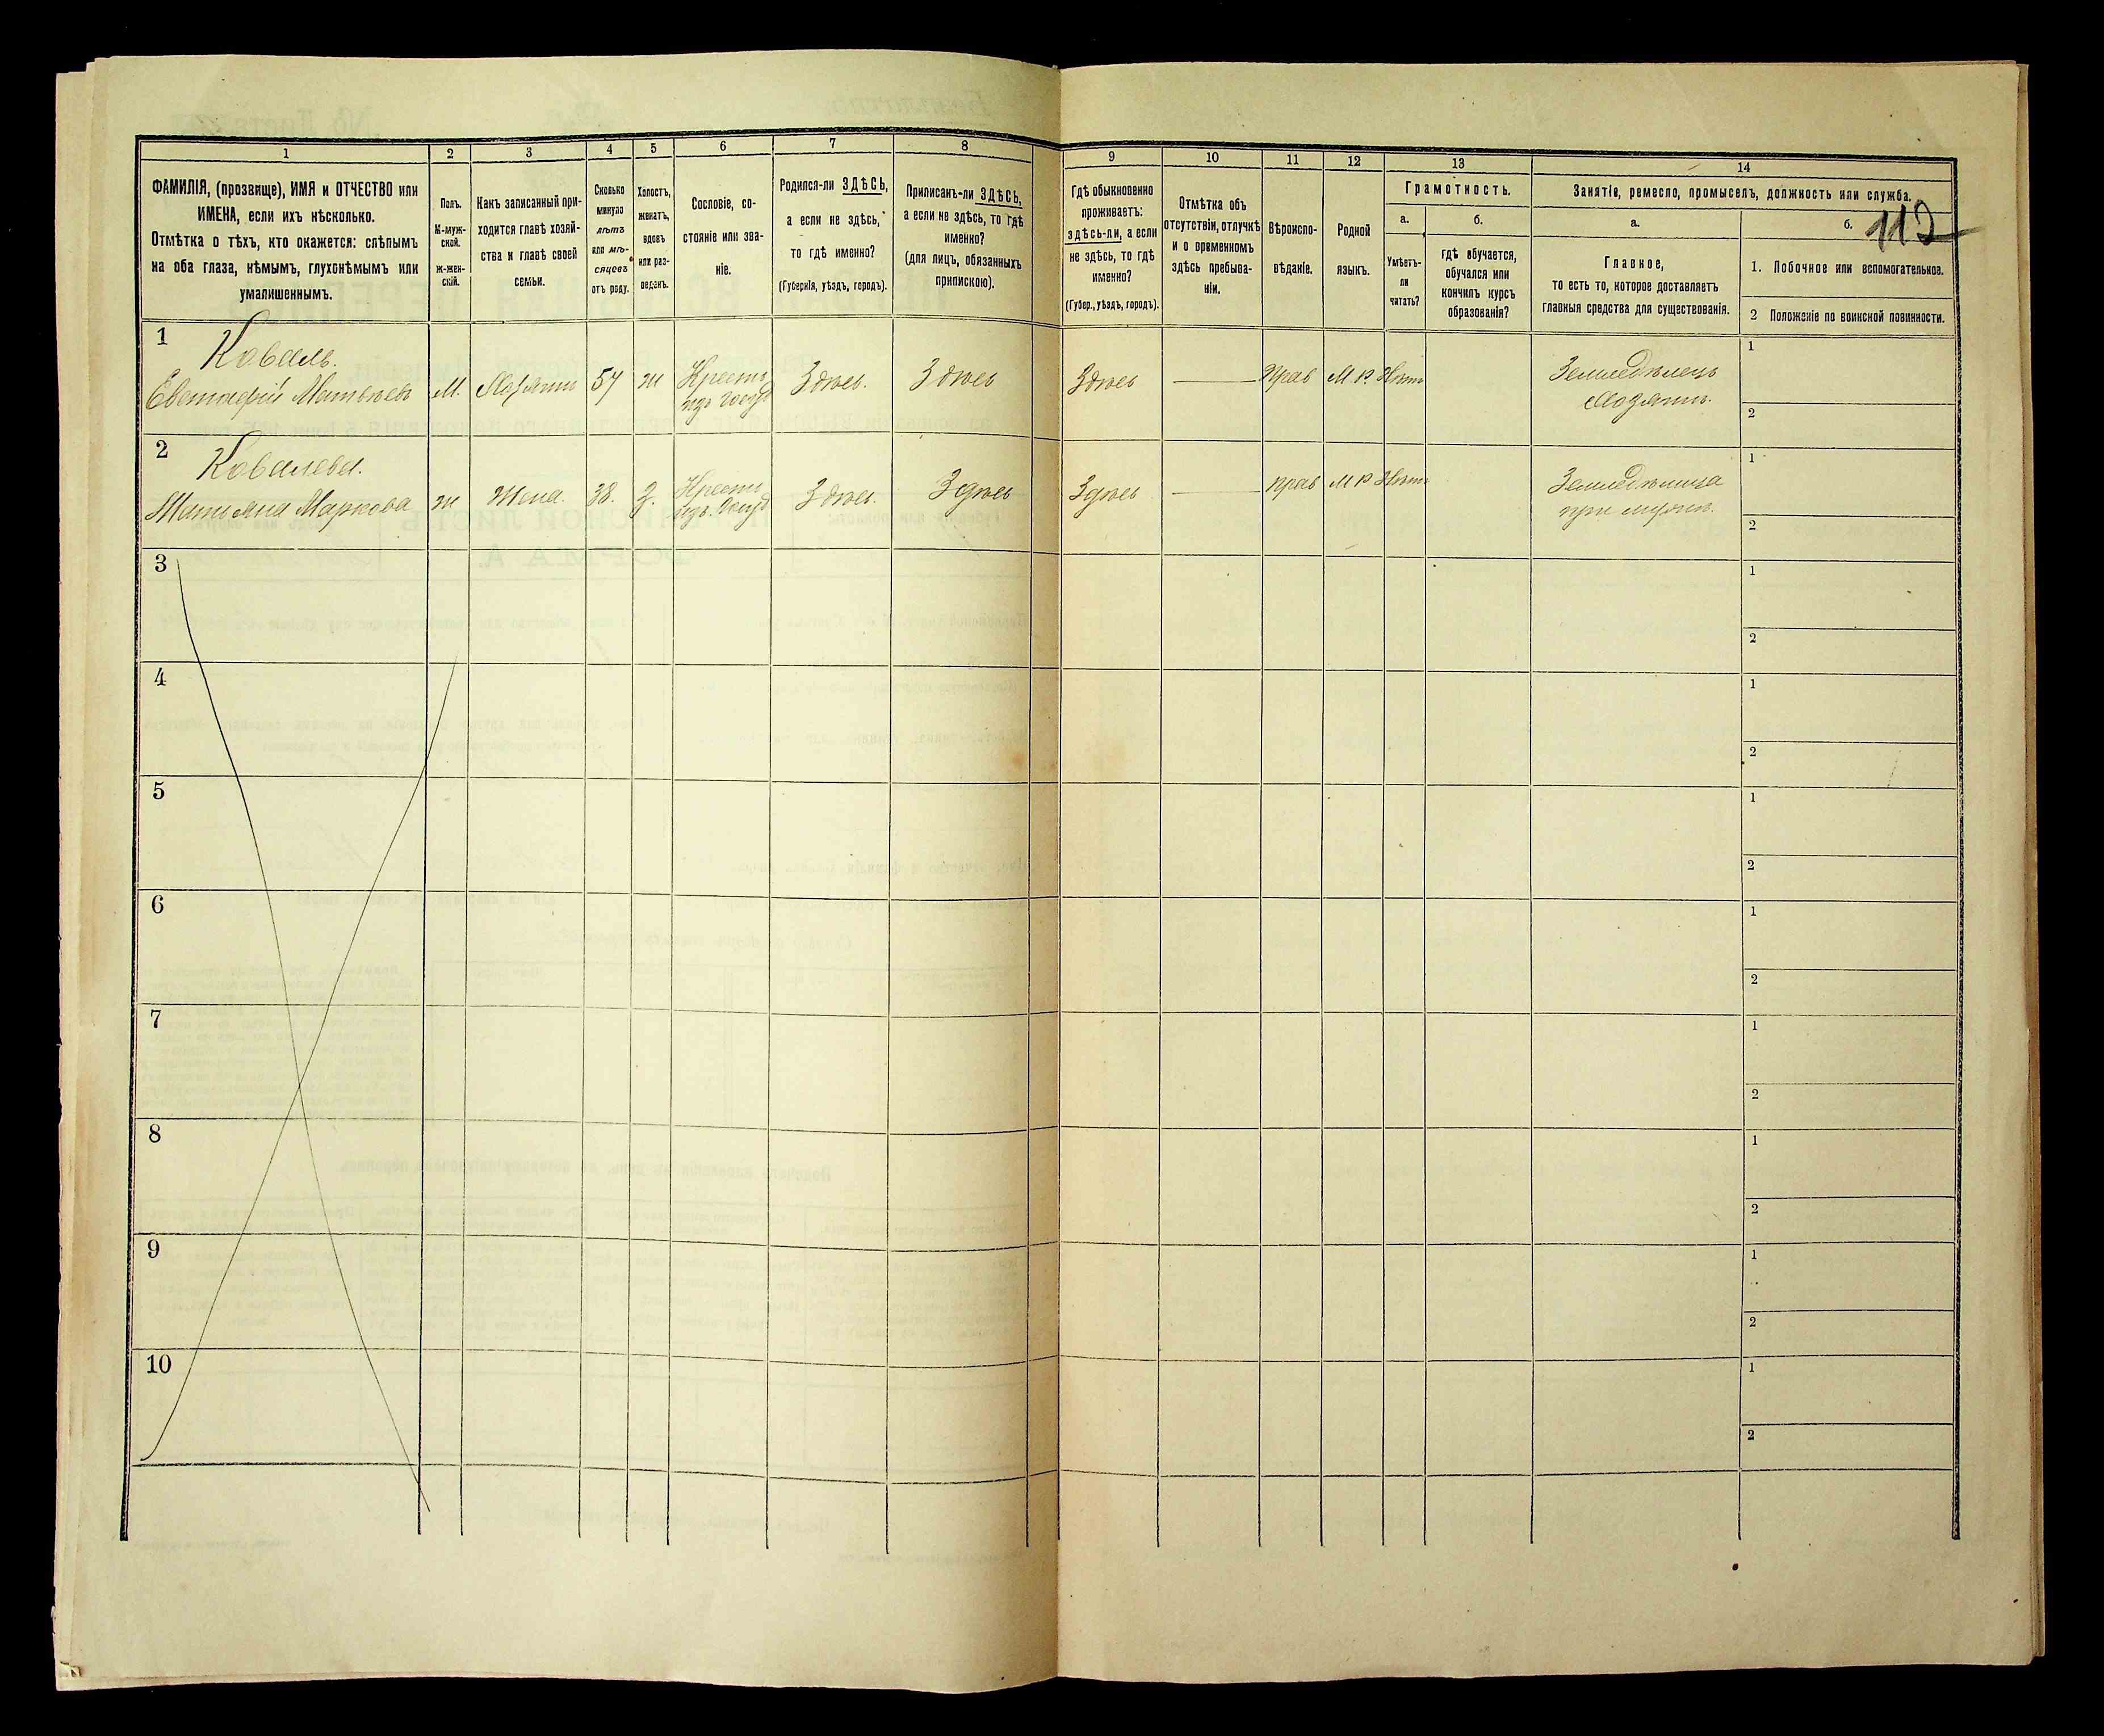 112
1 2 3 4 5 6 7 8 9 10 11 12 13 14
ФАМИЛІЯ, (прозвище), ИМЯ и ОТЧЕСТВО или
ИМЕНА, если ихъ нѣсколько.
Отмѣтка о тѣхъ, кто окажется: слѣпымъ
на оба глаза, нѣмымъ, глухонѣмымъ или
умалишеннымъ.
Полъ.
М-муж-
ской.
ж-жен-
скій.
Какъ записанный при-
ходится главѣ хозяй-
ства и главѣ своей
семьи.
Сколько
минуло
лѣтъ
или мѣ-
сяцевъ
отъ роду.
Холостъ,
женатъ,
вдовъ
или раз-
веденъ.
Сословіе, со-
стояніе или зва-
ніе.
Родился-ли ЗДѢСЬ,
а если не здѣсь,
то гдѣ именно?
(Губернія, уѣздъ, городъ).
Приписанъ-ли ЗДѢСЬ,
а если не здѣсь, то гдѣ
именно?
(для лицъ, обязанныхъ
припискою).
Гдѣ обыкновенно
проживаетъ:
здѣсь-ли, а если
не здѣсь, то гдѣ
именно?
(Губер., уѣздъ, городъ).
Отмѣтка объ
отсутствіи, отлучкѣ
и о временномъ
здѣсь пребыва-
ніи.
Вѣроиспо-
вѣданіе.
Родной
языкъ.
Грамотность.
а.
Умѣетъ-
ли
читать?
б.
гдѣ обучается,
обучался или
кончилъ курсъ
образованія?
Занятіе, ремесло, промыселъ, должность или служба.
а.
Главное,
то есть то, которое доставляетъ
главныя средства для существованія.
б.
1. Побочное или вспомогательное.
2 Положеніе по воинской повинности.
1 Коваль.
Евстафій Матвѣевъ М. Хозяинъ 57 ж Крестьян изъ Госуд Здѣсь. Здѣсь Здѣсь Прав М. Р. Нѣтъ Земледѣлецъ
Хозяинъ.
1
2
2 Ковалева.
Татьяна Маркова ж Жена. 38. З. Крестьян изъ Госуд Здѣсь Здѣсь Здѣсь прав М Р Нѣтъ Земледѣлица
при мужѣ.
1
2
3
1
2
4
1
2
5
1
2
6
1
2
7
1
2
8
1
2
9
1
2
10
1
2